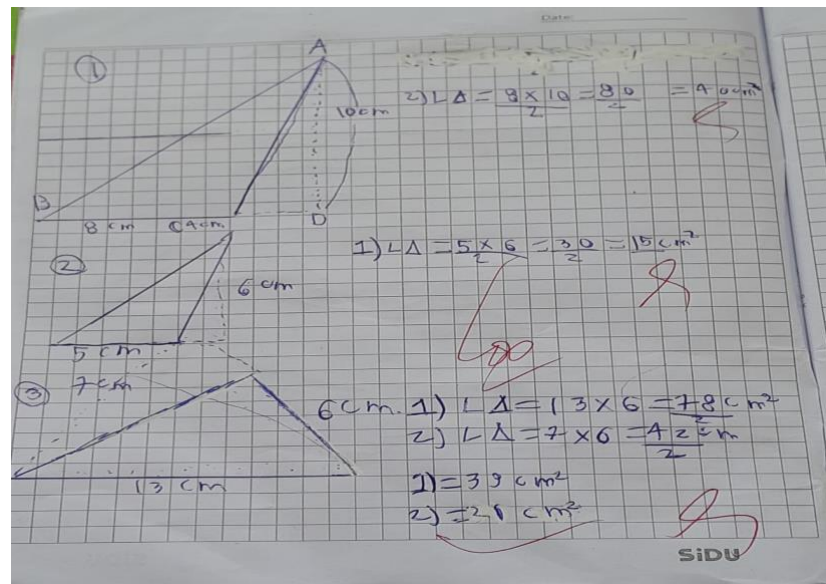 Date:
1
A
10cm
B
8 cm
C 4cm
D
2) L Δ = 8 x 10 / 2 = 80 / 2 = 40cm²
2
6 cm
5 cm
1) L Δ = 5 x 6 / 2 = 30 / 2 = 15cm²
3
7 cm
6cm
13 cm
1) L Δ = 13 x 6 = 78cm² / 2
2) L Δ = 7 x 6 = 42 cm / 2
1) = 39 cm²
2) = 21 cm²
SiDU